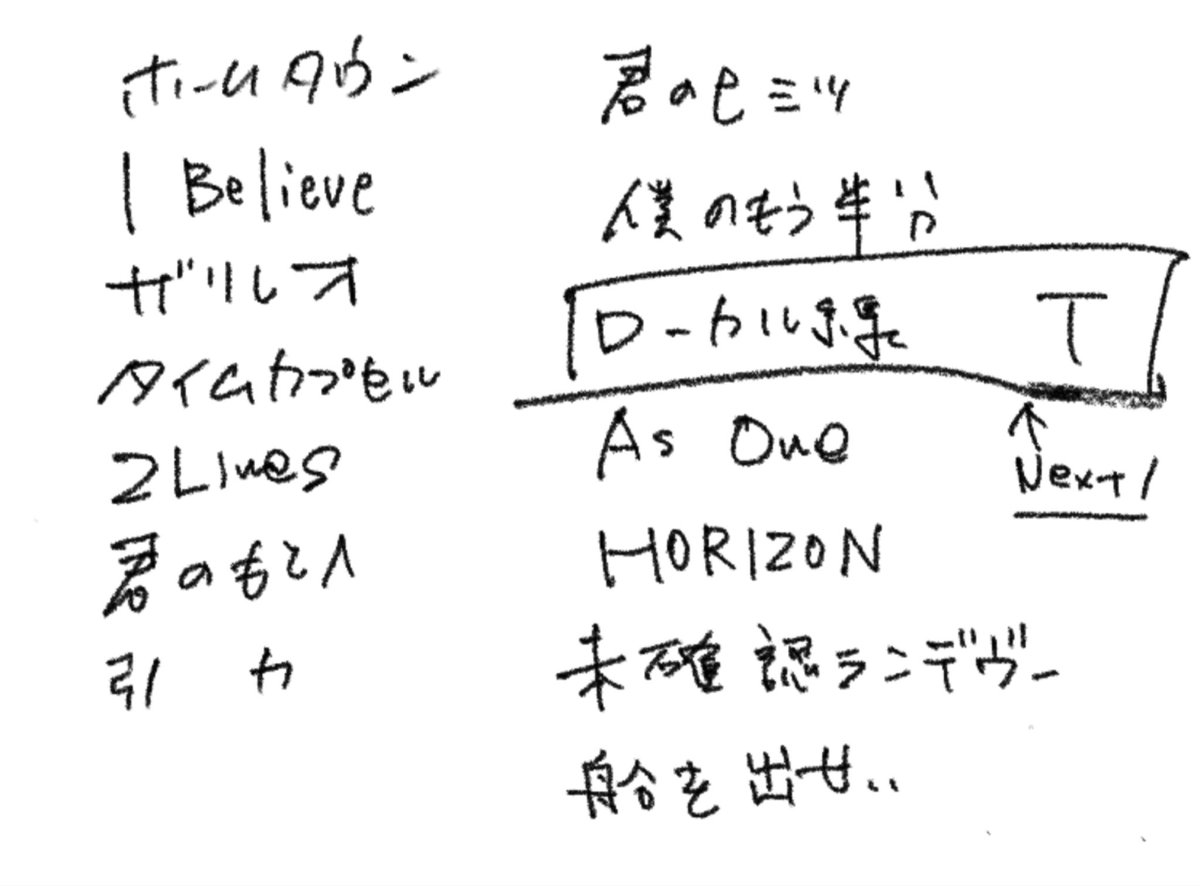 ホームタウン
I Believe
ガリレオ
タイムカプセル
2 Lines
君のもとへ
引力
君のヒミツ
僕のもう半分
ローカル線 T
As One
Next!
HORIZON
未確認ランデヴー
船を出せ..